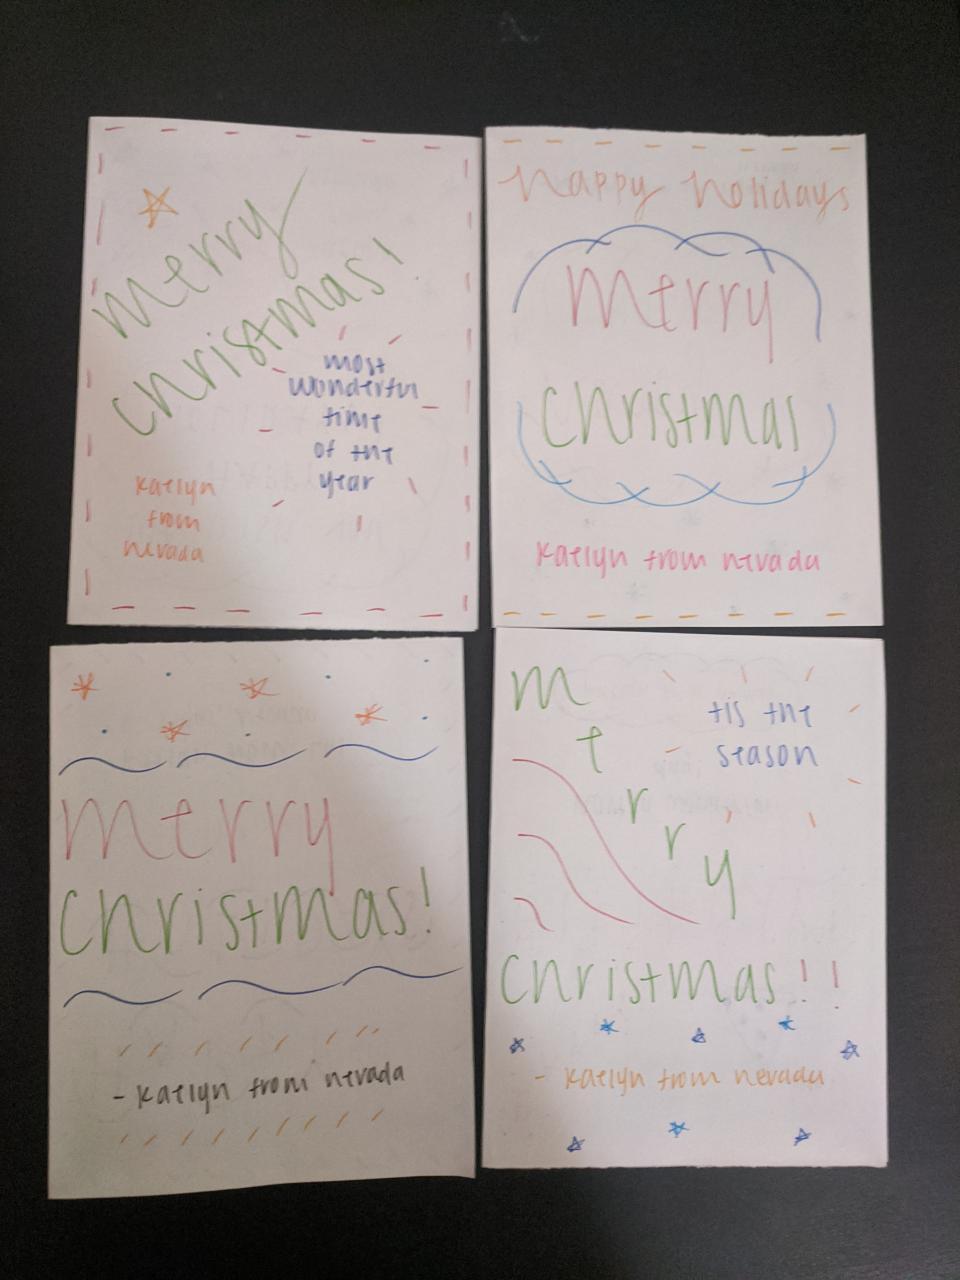 merry
christmas!
most
wonderful
time
of the
year
kaelyn
from
nevada
happy holidays
merry
christmas
kaelyn from nevada
merry
christmas!
- kaelyn from nevada
merry
tis the
season
christmas!!
- kaelyn from nevada